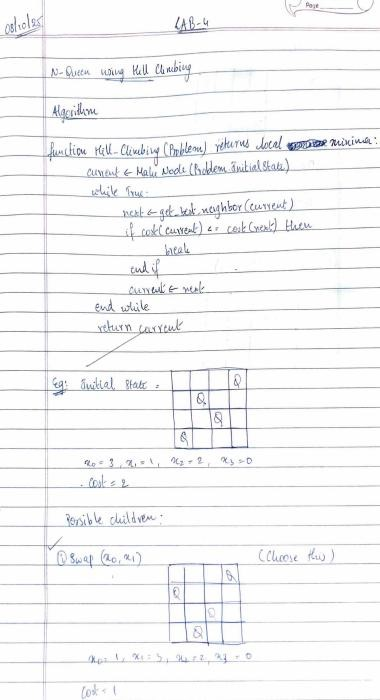 Page
08/10/25
LAB-4
N-Queen using Hill Climbing
Algorithm
function Hill-Climbing (Problem) returns local minima:
current ← Make Node (Problem Initial State)
while True:
next ← get_best_neighbor (current)
if cost(current) <= cost(next) then
break
end if
current ← next
end while
return current
Eg: Initial State =
Q
Q
Q
Q
x0 = 3, x1 = 1, x2 = 2, x3 = 0
Cost = 2
Possible children:
① Swap (x0, x1) (Choose this)
Q
Q
Q
Q
x0 = 1, x1 = 3, x2 = 2, x3 = 0
Cost = 1